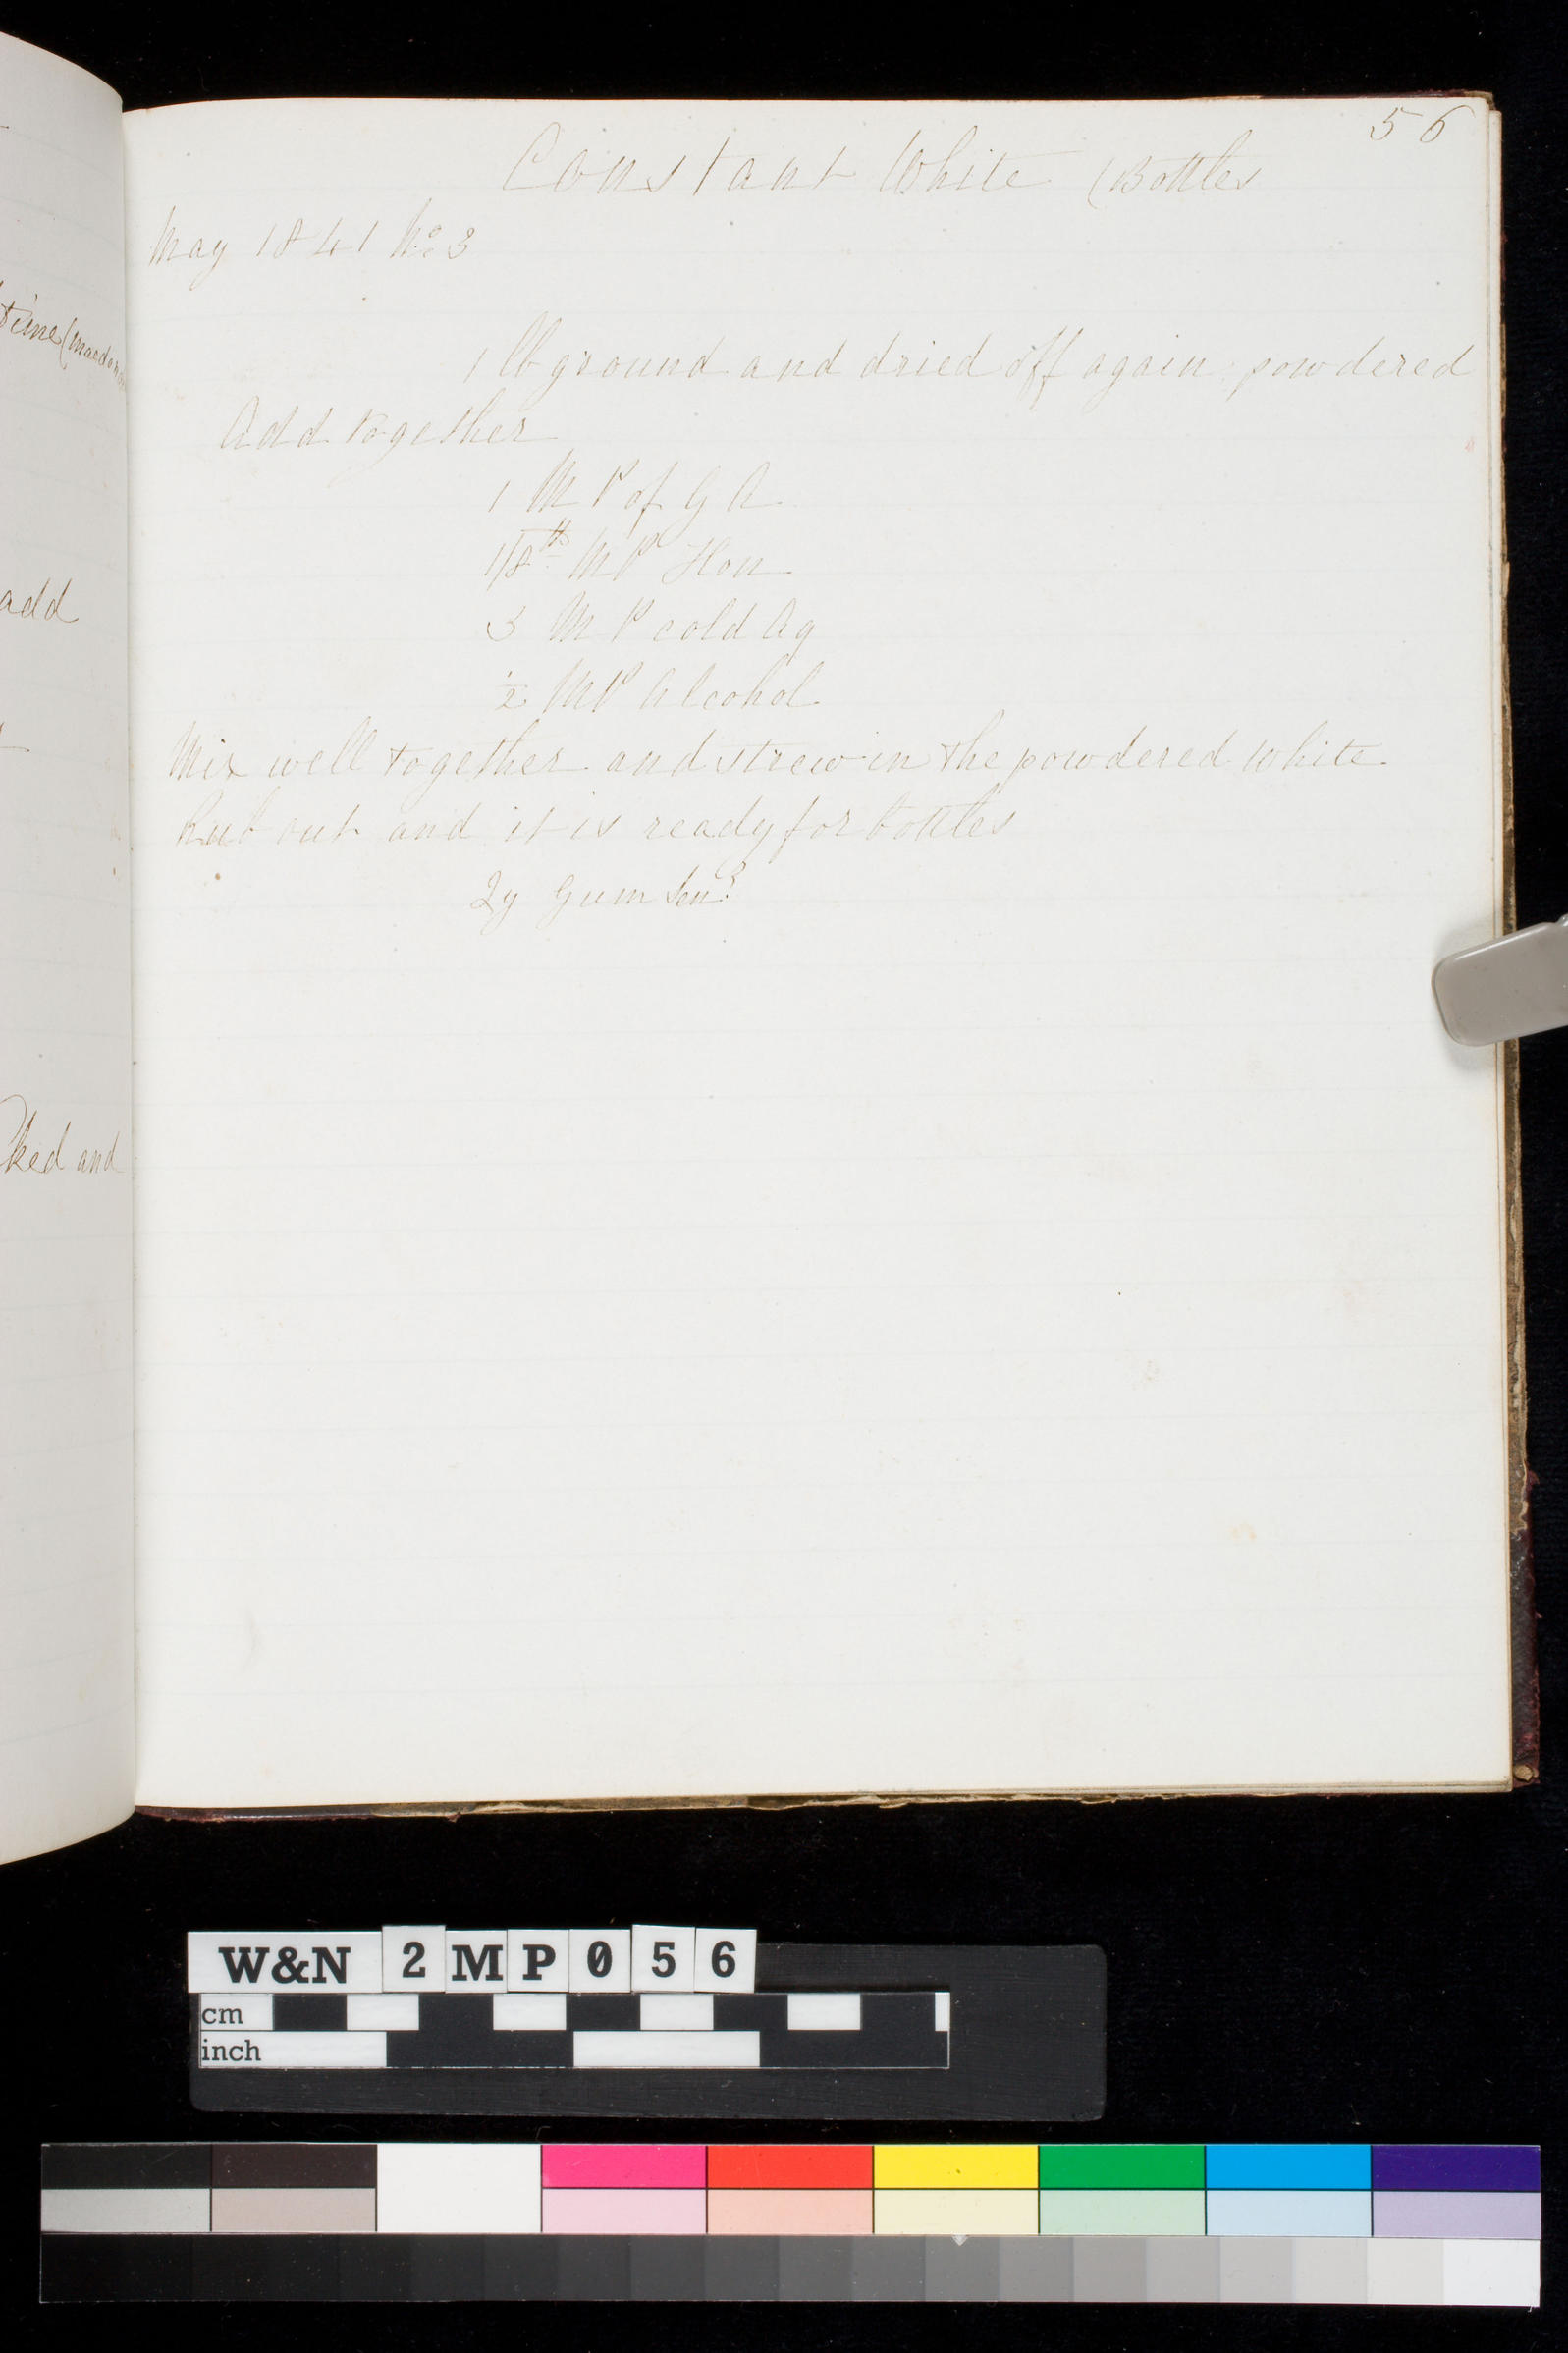 56
Constant White (Bottles
May 1841 No 3
1 lb ground and dried off again powdered
Add together
1 M P of G A
1/8th M P Hon
3 M P cold Aq
1/2 M P Alcohol
Mix well together and strew in the powdered White
Rub out and it is ready for bottles
Qy Gum Sen?
add
ked and
W&N 2MP056
cm
inch